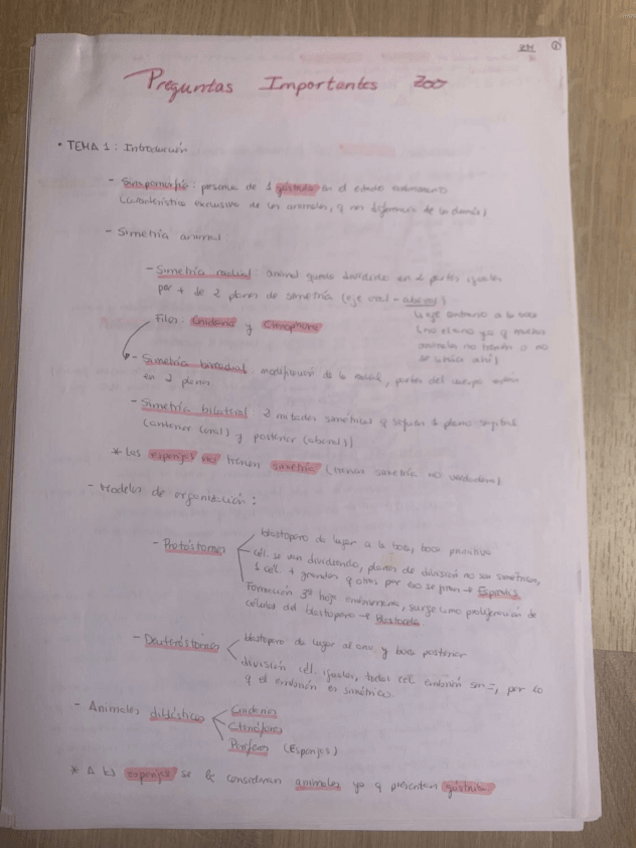 Preguntas Importantes Zoo
• TEMA 1: Introducción
- Sinapomorfia: presencia de 1 gástrula en el estado embrionario
(característica exclusiva de los animales, q nos diferencia de los demás)
- Simetría animal
- Simetría radial: animal queda dividido en 2 partes iguales
por + de 2 planos de simetría (eje oral - aboral)
Filos: Cnidarios y Ctenophora
↳ eje contrario a la boca
(no el ano ya q muchos
animales no tienen o no
se sitúa ahí)
- Simetría birradial: modificación de la radial, partes del cuerpo
en 2 planos
- Simetría bilateral 2 mitades simétricas q siguen 1 plano sagital
(anterior (oral) y posterior (aboral))
* Las esponjas no tienen simetría (tienen simetría no verdadera)
- Modelos de organización:
- Protóstomos
blastoporo da lugar a la boca, boca primitiva
cél. se van dividiendo, planos de división no son simétricos,
1 cél. + grandes q otras por eso se → Espiral
Formación 3ª hoja embrionaria, surge como proliferación de
células del blastoporo →
- Deuteróstomos
blastoporo da lugar al ano y boca posterior
división cél. iguales, todas cél. embrión son =, por lo
q el embrión es simétrico.
- Animales diblásticos
Cnidarios
Ctenóforos
Poríferos (Esponjas)
* A las esponjas se le consideran animales ya q presentan gástrula.